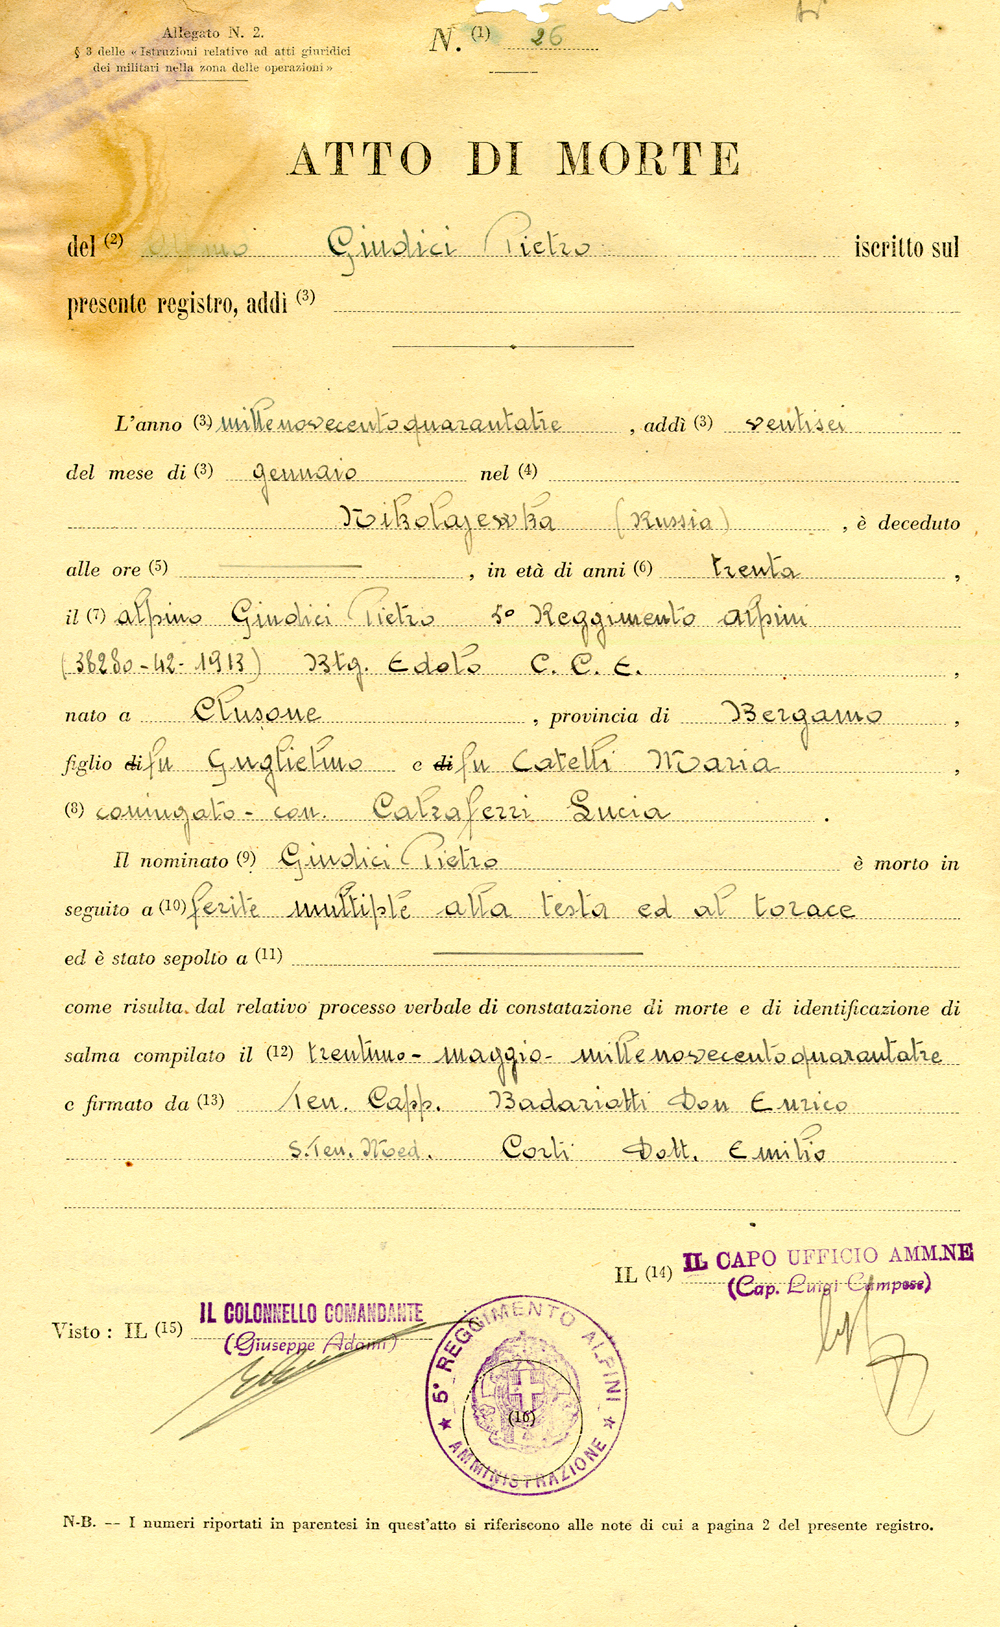 Allegato N. 2.
§ 3 delle « Istruzioni relative ad atti giuridici
dei militari nella zona delle operazioni »
N. (1) 26
ATTO DI MORTE
del (2) alpino Giudici Pietro iscritto sul
presente registro, addì (3)
L'anno (3) millenovecentoquarantatre, addì (3) ventisei
del mese di (3) gennaio nel (4)
Nikolajewka (Russia), è deceduto
alle ore (5) , in età di anni (6) trenta,
il (7) alpino Giudici Pietro 5° Reggimento alpini
(38280-42-1913) Btg. Edolo C. C. E.,
nato a Clusone, provincia di Bergamo,
figlio di fu Guglielmo e di fu Catelli Maria,
(8) coniugato - con. Calzaferri Lucia.
Il nominato (9) Giudici Pietro è morto in
seguito a (10) ferite multiple alla testa ed al torace
ed è stato sepolto a (11)
come risulta dal relativo processo verbale di constatazione di morte e di identificazione di
salma compilato il (12) trentuno - maggio - millenovecentoquarantatre
e firmato da (13) Ten. Capp. Badariotti Don Enrico
S.Ten. Med. Corti Dott. Emilio
IL (14) IL CAPO UFFICIO AMM.NE
(Cap. Luigi Campese)
Visto : IL (15) IL COLONNELLO COMANDANTE
(Giuseppe Adami)
5° REGGIMENTO ALPINI
★ AMMINISTRAZIONE ★
(16)
N-B. — I numeri riportati in parentesi in quest'atto si riferiscono alle note di cui a pagina 2 del presente registro.